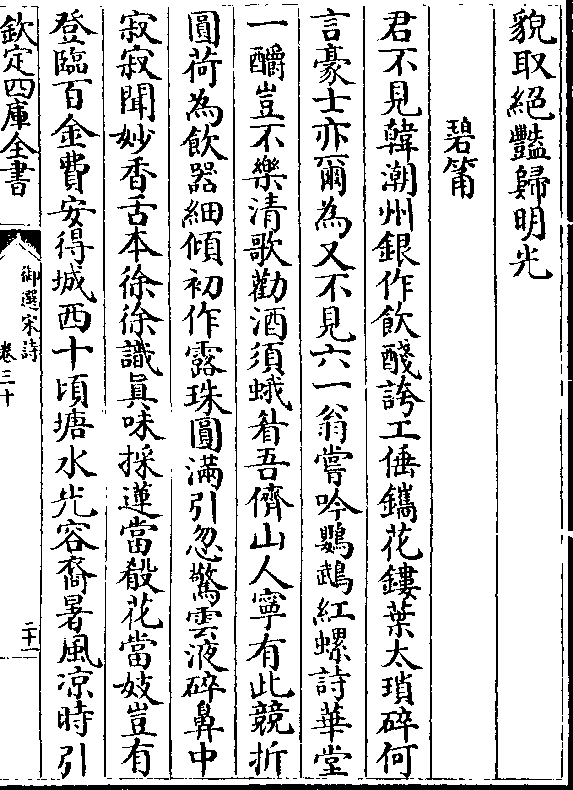 貌取絕豔歸明光
碧筩
君不見韓潮州銀作飲醆誇工倕鐫花鏤葉太瑣碎何
言豪士亦爾為又不見六一翁嘗吟鸚鵡紅螺詩華堂
一釂豈不樂清歌勸酒須蛾眉吾儕山人寧有此競折
圓荷為飲器細傾初作露珠圓滿引忽驚雲液碎鼻中
寂寂聞妙香舌本徐徐識真味採蓮當殽花當妓豈有
登臨百金費安得城西十頃塘水光容裔暑風凉時引
欽定四庫全書
御選宋詩
卷三十
二十一